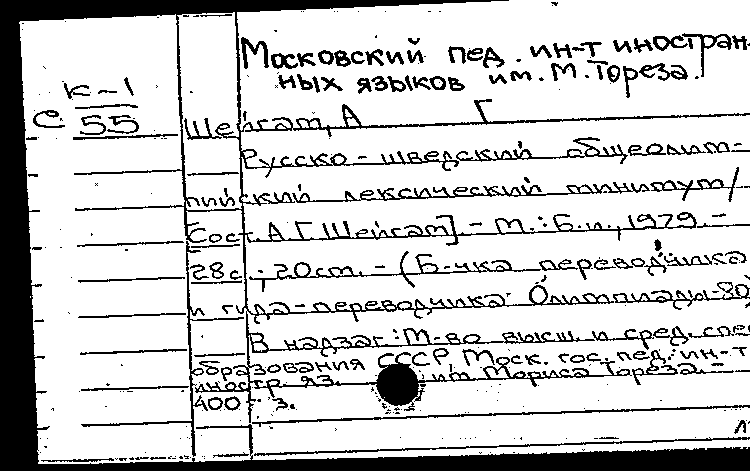 Московский пед. ин-т иностран-
ных языков им. М. Тореза.
К-1
С 55
Шейгам, А Г
Русско-шведский общеолим-
пийский лексический минимум /
Сост. А.Г. Шейгам]. - М.: Б.и., 1979. -
28с.; 20см. - (Б-чка переводчика
и гида-переводчика Олимпиады-80
В надзаг.: М-во высш. и сред. спец
образования СССР, Моск. гос. пед. ин-т
иностр. яз. им. Мориса Тореза. -
400 э.